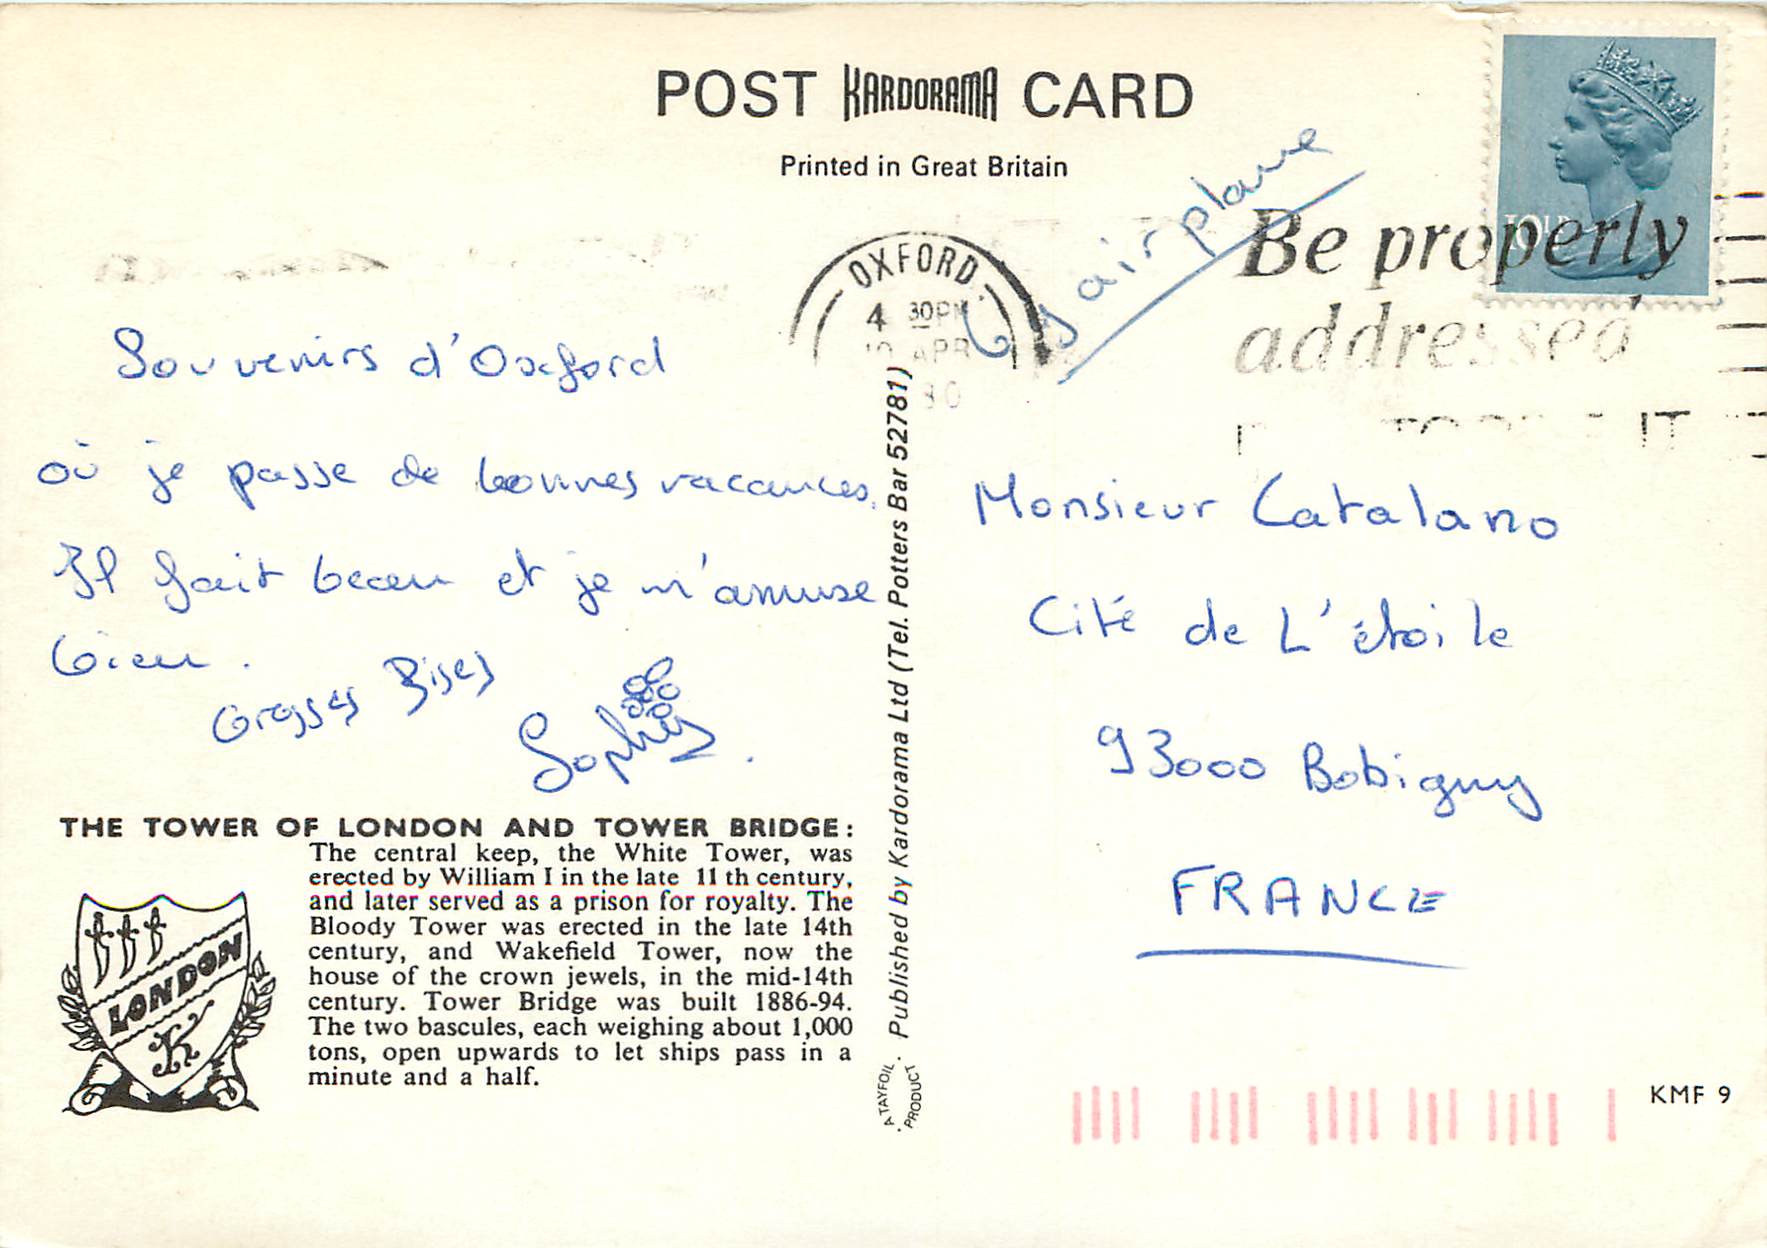 POST KARDORAMA CARD
Printed in Great Britain
by airplane
10½P
OXFORD
4 30PM
APR
Be properly
addressed
Souvenirs d'Oxford
où je passe de bonnes vacances.
Il fait beau et je m'amuse
bien.
Grosses Bises
Sophie
Monsieur Catalano
Cité de L'étoile
93000 Bobigny
FRANCE
THE TOWER OF LONDON AND TOWER BRIDGE:
The central keep, the White Tower, was
erected by William I in the late 11 th century,
and later served as a prison for royalty. The
Bloody Tower was erected in the late 14th
century, and Wakefield Tower, now the
house of the crown jewels, in the mid-14th
century. Tower Bridge was built 1886-94.
The two bascules, each weighing about 1,000
tons, open upwards to let ships pass in a
minute and a half.
LONDON
K
Published by Kardorama Ltd (Tel. Potters Bar 52781)
A TAYFOIL
PRODUCT
KMF 9